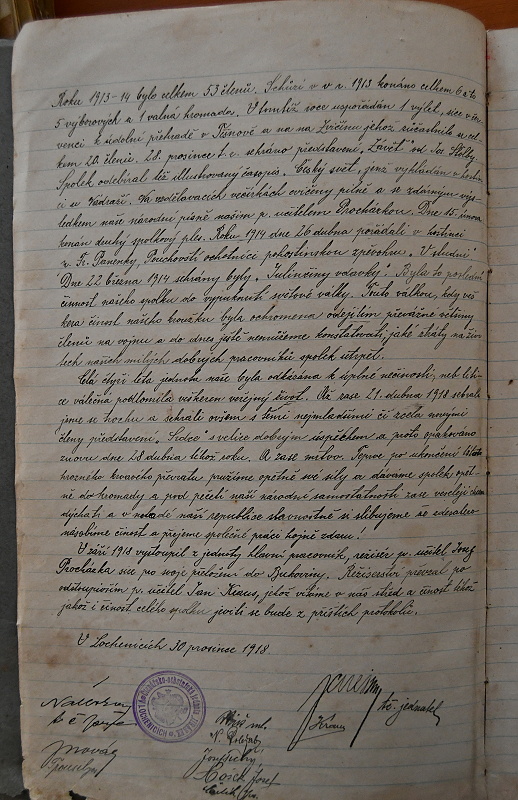 Roku 1913-14 bylo celkem 53 členů. Schůzí v r. 1913 konáno celkem 6 a to
5 výborových a 1 valná hromada. V tomtéž roce uspořádán 1 výlet, sice v čer
venci k údolní přehradě v Těšnově a na Zvičinu jehož súčastnilo se cel-
kem 20 členů. 28. prosince t. r. sehráno představení „Závěť" od Jos. Štolby.
Spolek odebíral též illustrovaný časopis „Český svět", jenž vykládán v hostin
ci u Nádraží. Na vzdělávacích večírkách cvičeny pilně a se zdárným vý-
sledkem naše národní písně naším p. učitelem Procházkou. Dne 15. února
konán druhý spolkový ples. Roku 1914 dne 26 dubna pořádali v hostinci
z Fr. Panenky, Pouchovští ochotníci pohostinskou zpěvohru „V studni"
Dne 22 března 1914 sehrány byly „Julinčiny vdavky". Byla to poslední
činnost našeho spolku do vypuknutí světové války. Touto válkou, kdy veš
kerá činost našeho kroužku byla ochromena odejitím převážné většiny
členů na vojnu a do dnes ještě nemůžeme konstatovati, jaké ztráty na živo
tech našich milých dobrých pracovníků spolek utrpěl.
Celá čtyři léta jednota naše byla odkázána k úplné nečinosti, neb líti-
ce válečná podlomila veškeren veřejný život. Až zase 21. dubna 1918 sebrali
jsme se trochu a sehráli ovšem s těmi nejmladšími či zcela novými
členy představení „Srdce" s velice dobrým úspěchem a proto opakováno
znovu dne 28 dubna téhož roku. A zase mrtvo. Teprve po ukončení
hrozného krvavého převratu pružíme opětně své síly a dáváme spolek opět-
ně do hromady a pod pečetí naší národní samostatnosti zase veseleji
dýchati a v mladé naší republice slavnostně si slibujeme že edesatero
násobíme činost a přejeme společné práci hojně zdaru!
V září 1918 vystoupil z jednoty hlavní pracovník, režisér p. učitel Josef
Procházka sic po svojí přeložení do Bukoviny. Režisérství převzal po
odstoupivším p. učitel Jan Kraus, jehož vítáme v náš střed a činost téhož
jakož i činost celého spolku jeviti se bude z příštích protokolů.
V Lochenicích 30 prosince 1918.
t. č. jednatel
Kraus
Horek Josef